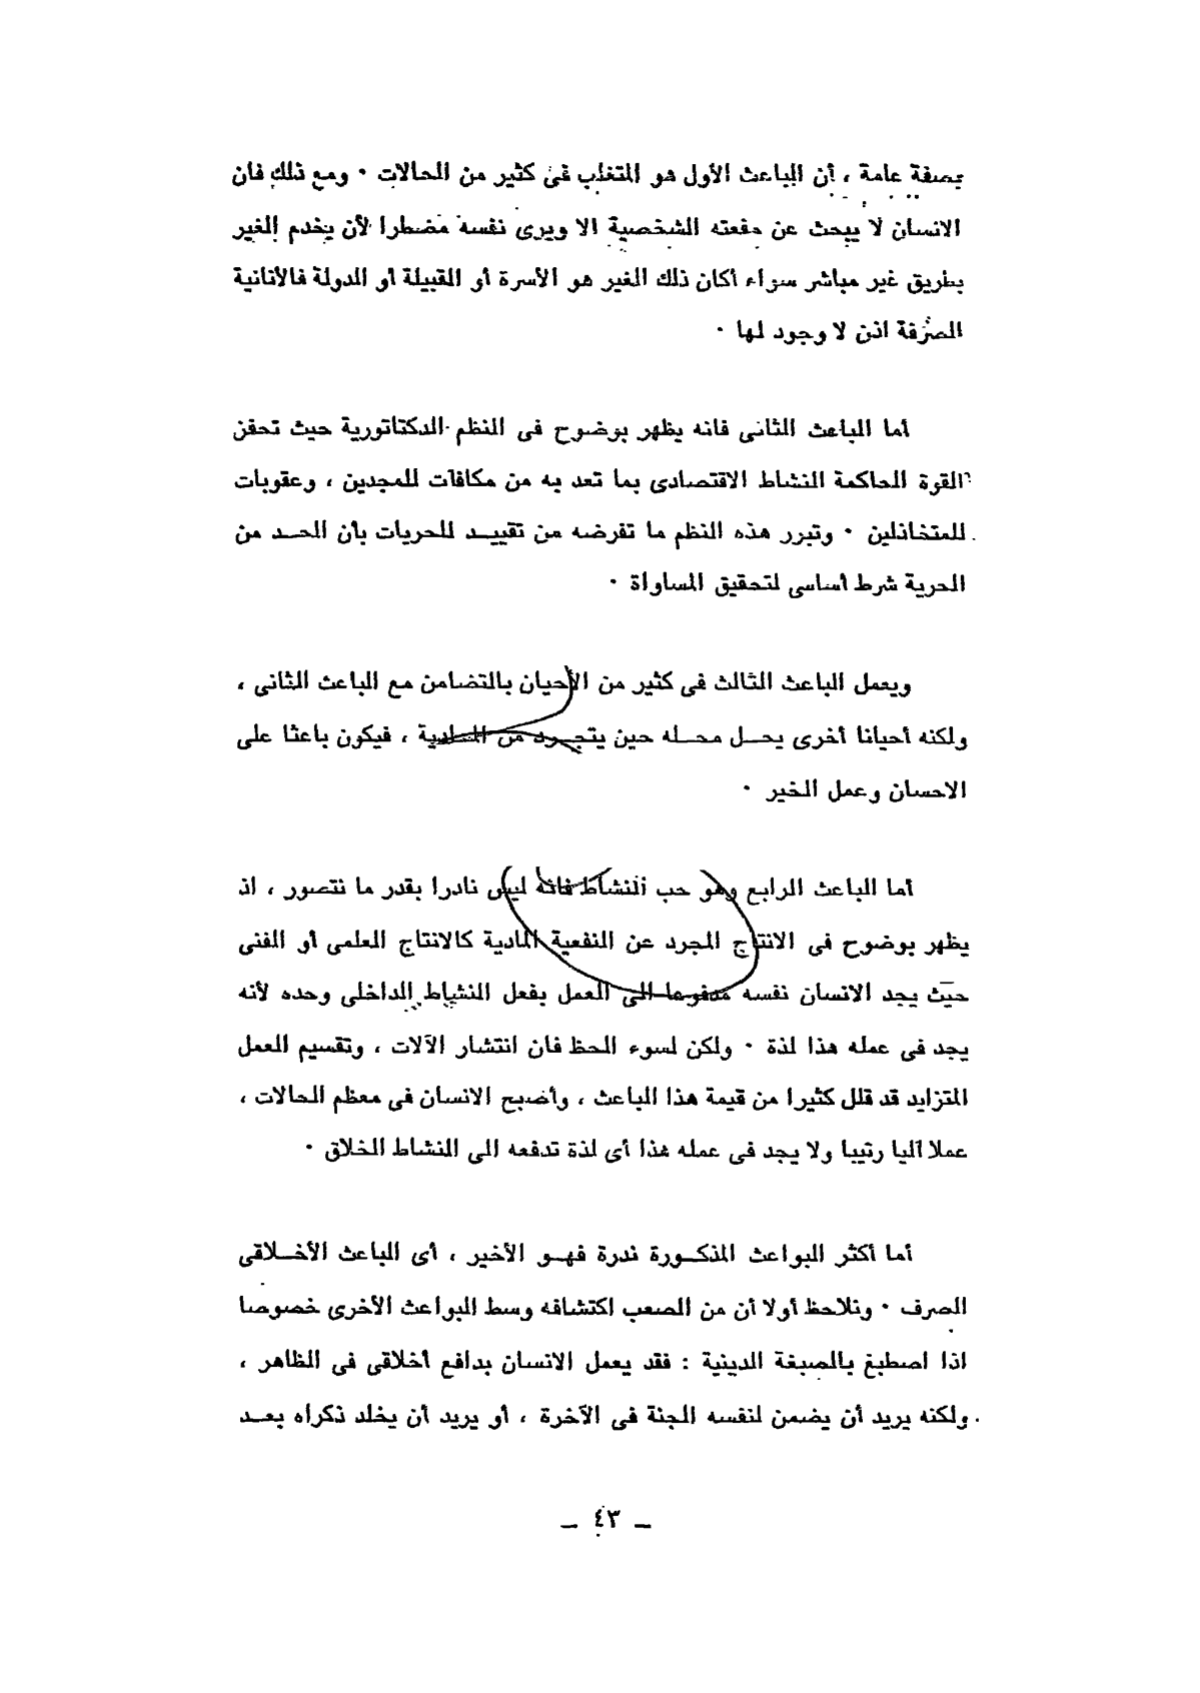 بصفة عامة ، أن الباعث الأول هو المتغلب فى كثير من الحالات ٠ ومع ذلك فان
الانسان لا يبحث عن منفعته الشخصية الا ويرى نفسه مضطرا لأن يخدم الغير
بطريق غير مباشر سواء أكان ذلك الغير هو الأسرة أو القبيلة أو الدولة فالأنانية
الصرفة اذن لا وجود لها ٠
أما الباعث الثانى فانه يظهر بوضوح فى النظم الدكتاتورية حيث تحفز
القوة الحاكمة النشاط الاقتصادى بما تعد به من مكافآت للمجدين ، وعقوبات
للمتخاذلين ٠ وتبرر هذه النظم ما تفرضه من تقييد للحريات بأن الحد من
الحرية شرط أساسى لتحقيق المساواة ٠
ويعمل الباعث الثالث فى كثير من الأحيان بالتضامن مع الباعث الثانى ،
ولكنه أحيانا أخرى يحل محله حين يتجرد من المادية ، فيكون باعثا على
الاحسان وعمل الخير ٠
أما الباعث الرابع وهو حب النشاط فانه ليس نادرا بقدر ما نتصور ، اذ
يظهر بوضوح فى الانتاج المجرد عن النفعية المادية كالانتاج العلمى أو الفنى
حيث يجد الانسان نفسه مدفوعا الى العمل بفعل النشاط الداخلى وحده لأنه
يجد فى عمله هذا لذة ٠ ولكن لسوء الحظ فان انتشار الآلات ، وتقسيم العمل
المتزايد قد قلل كثيرا من قيمة هذا الباعث ، وأصبح الانسان فى معظم الحالات ،
عملا آليا رتيبا ولا يجد فى عمله هذا أى لذة تدفعه الى النشاط الخلاق ٠
أما أكثر البواعث المذكورة ندرة فهو الأخير ، أى الباعث الأخلاقى
الصرف ٠ ونلاحظ أولا أن من الصعب اكتشافه وسط البواعث الأخرى خصوصا
اذا اصطبغ بالصبغة الدينية : فقد يعمل الانسان بدافع أخلاقى فى الظاهر ،
ولكنه يريد أن يضمن لنفسه الجنة فى الآخرة ، أو يريد أن يخلد ذكراه بعد
ــ ٤٣ ــ